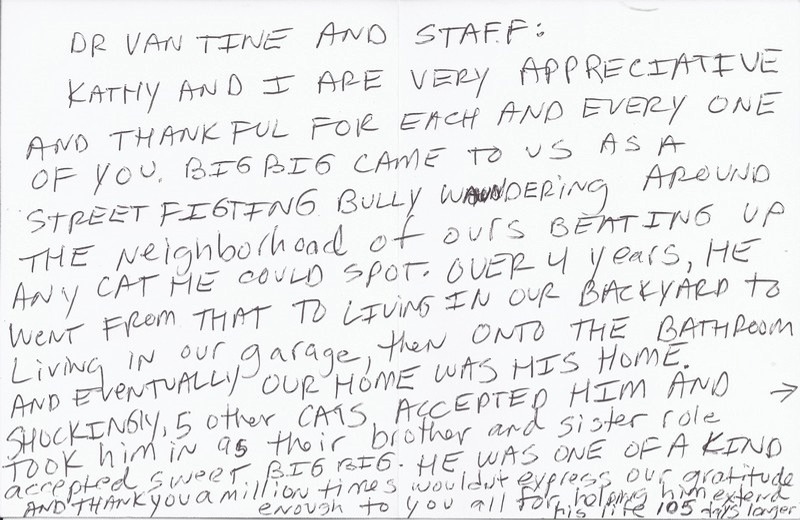 DR VAN TINE AND STAFF:
KATHY AND I ARE VERY APPRECIATIVE
AND THANKFUL FOR EACH AND EVERY ONE
OF YOU. BIG BIG CAME TO US AS A
STREET FIGTING BULLY WANDERING AROUND
THE Neighborhood of ours BEATING UP
ANY CAT HE COULD SPOT. OVER 4 years, HE
WENT FROM THAT TO LIVING IN OUR BACKYARD to
Living in our garage, then ONTO THE BATHROOM
AND EVENTUALLY OUR HOME WAS HIS HOME.
SHOCKINGLY, 5 other CATS ACCEPTED HIM AND →
TOOK him in as their brother and sister role
accepted sweet BIG BIG. HE WAS ONE OF A KIND
AND THANK you a million times wouldnt express our gratitude
enough to you all for helping him extend
his life 105 days longer